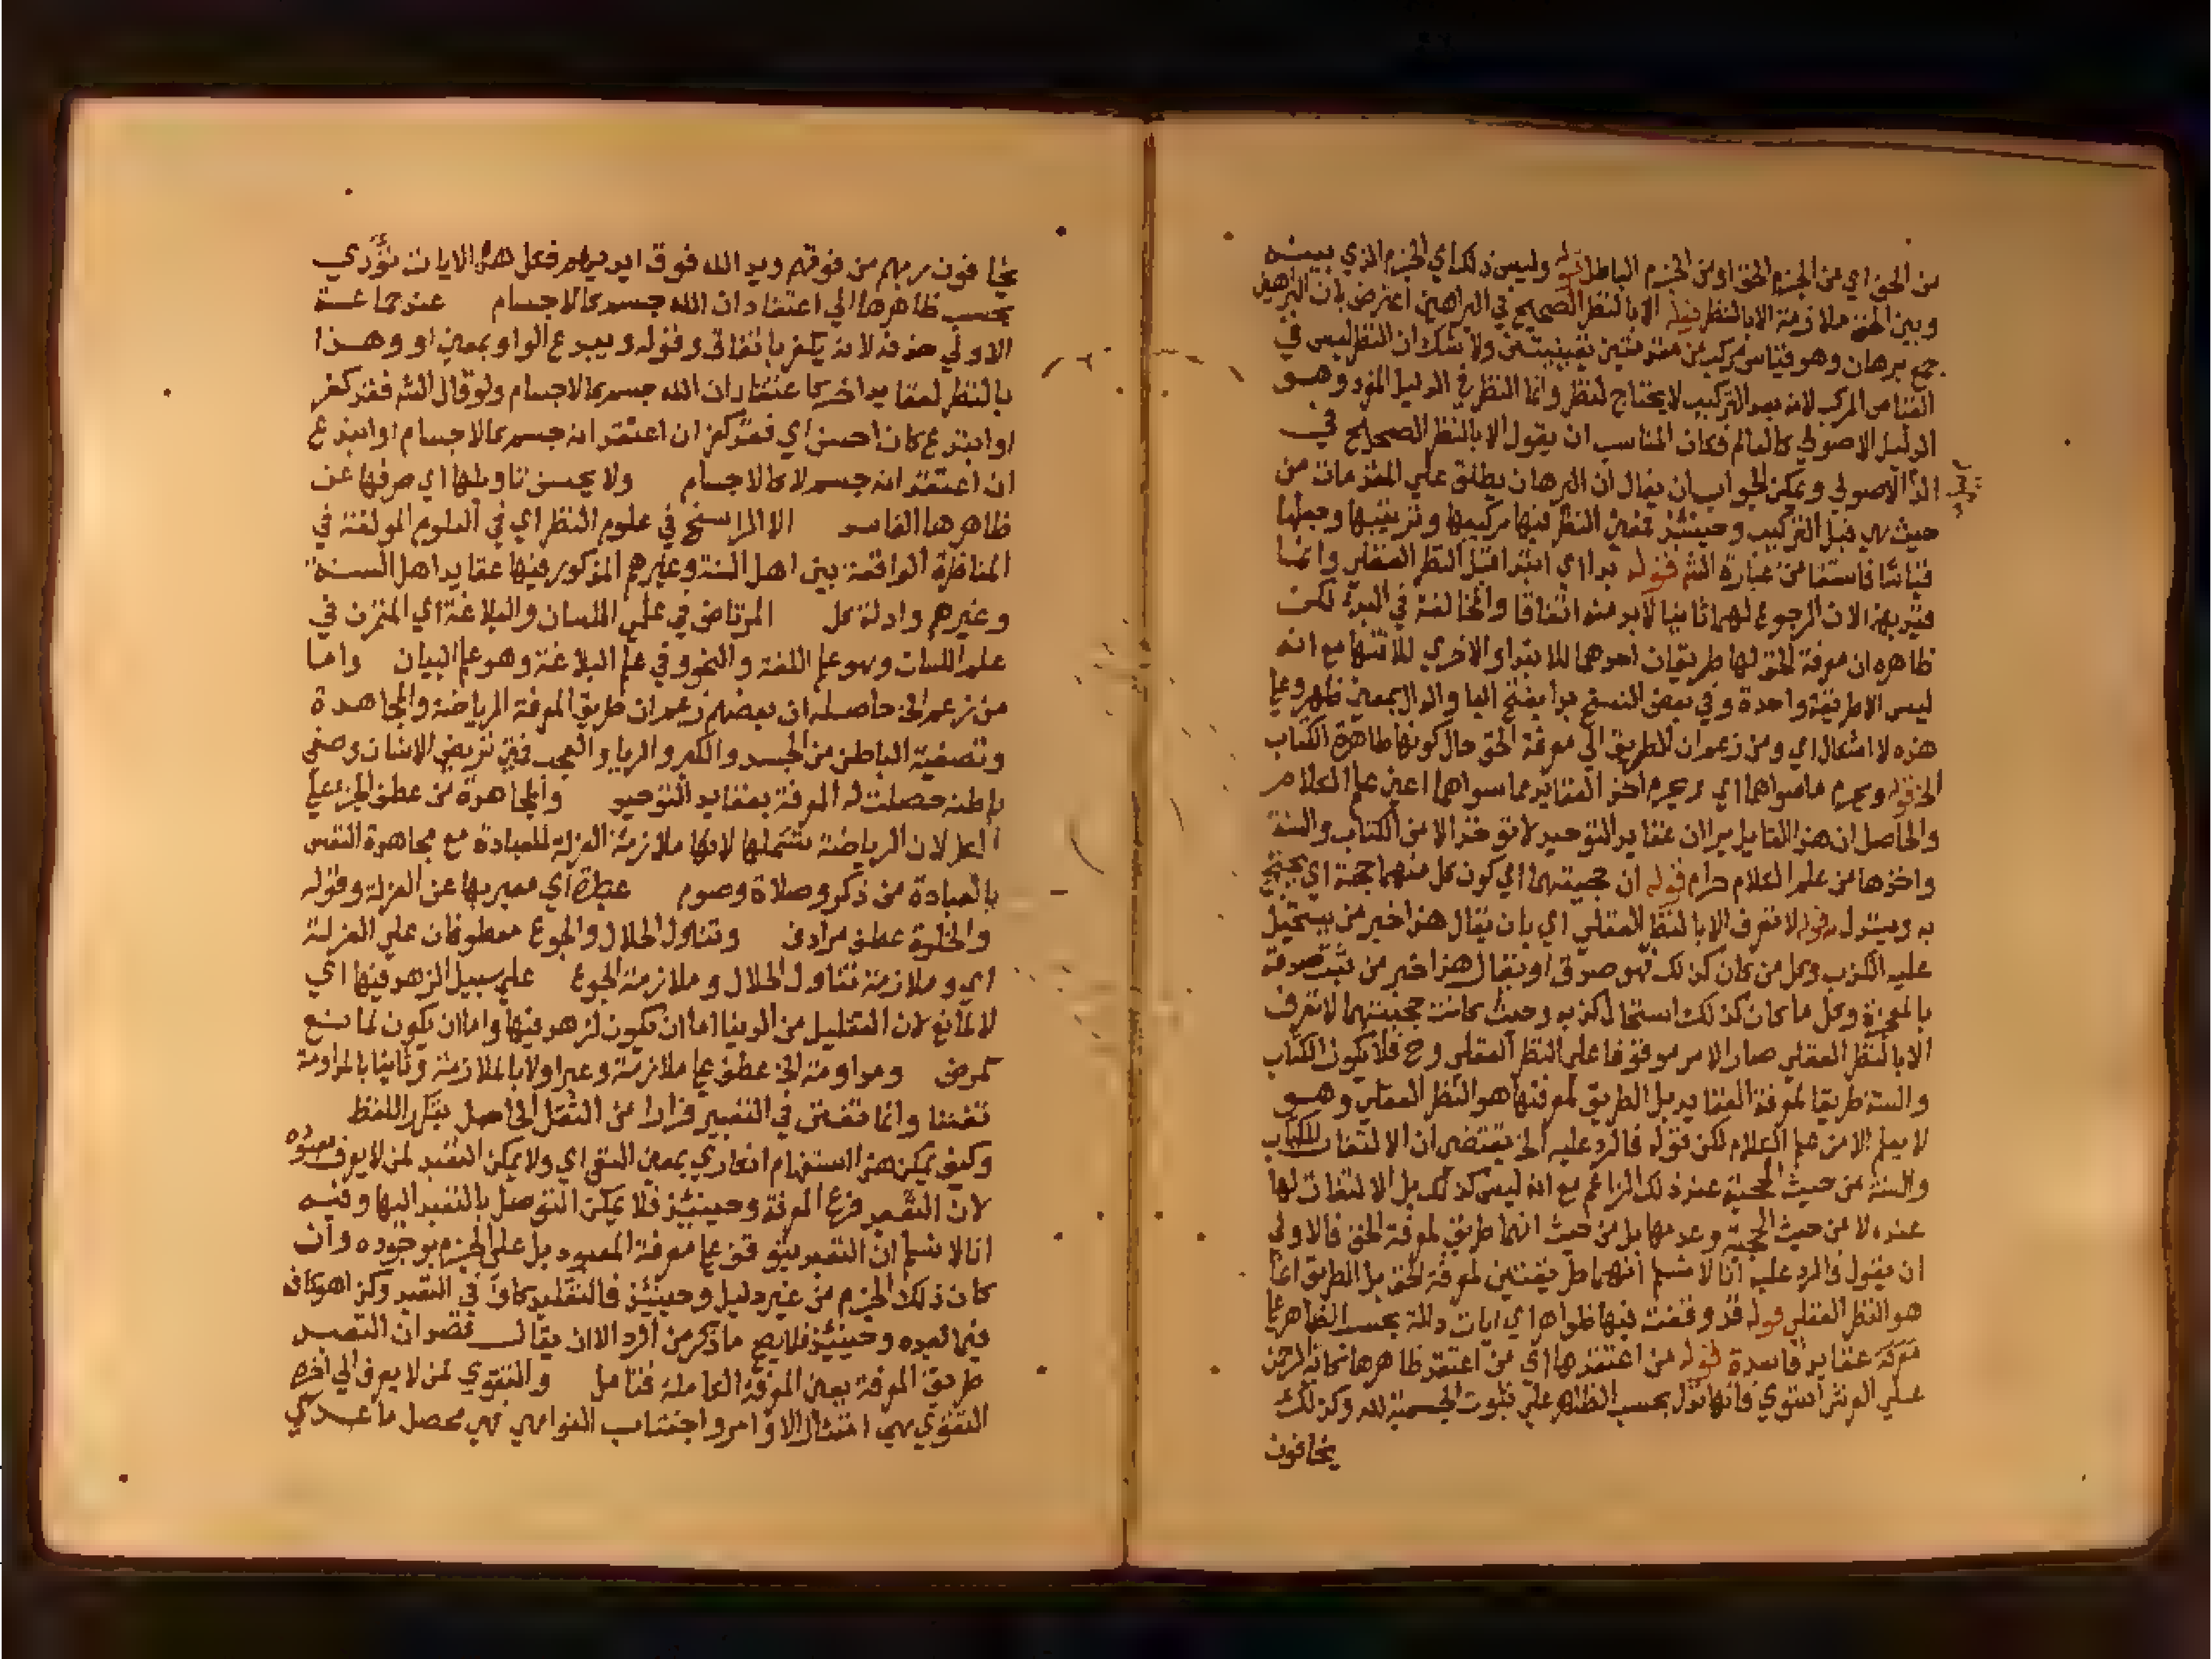 من الحق اي من الجزم الحق او من الجزم الباطل قوله وليس ذلك اي الجزم الذي بينه
وبين الحق ملازمة الا بالنظر قوله الا بالنظر الصحيح في البراهين اعترض بان البراهين
جمع برهان وهو قياس مركب من مقدمتين يقينيتين ولا شك ان النظر ليس في
القياس المركب لانه بعد التركيب لا يحتاج لنظر وانما النظر في الدليل المفرد وهو
الدليل الاصولي كالعالم فكان المناسب ان يقول الا بالنظر الصحيح في
الاصولي ويمكن الجواب ان يقال ان البرهان يطلق علي المقدمات من
حيث هي قبل التركيب وحينئذ فمعني النظر فيها تركيبها وترتيبها وجعلها
قياسا فاستقامت عبارة الشم قوله بدا اي ابتدا قبل النظر العقلي وانما
قيد بهذا لان الرجوع لهما ثانيا لابد منه اتفاقا والمخالفة في البدء لكن
ظاهره ان معرفة الحق لها طريقان احدهما للابتدا والاخري للانتها مع انه
ليس الا طريقة واحدة وفي بعض النسخ بدا بفتح البا والدال بمعني ظهر وعلي
هذه لا اشكال اي ومن زعم ان الطريق الي معرفة الحق حال كونها ظاهرة الكتاب
الخ قوله ويحرم ما سواهما اي ويحرم اخذ العقايد مما سواهما اعني علم الكلام
والحاصل ان هذا القايل يري ان عقايد التوحيد لا توخذ الا من الكتاب والسنة
واخذها من علم الكلام حرام قوله ان حجيتهما اي كون كل منهما حجة اي يحتج
به ويستدل قوله لا تعرف الا بالنظر العقلي اي بان يقال هذا خبر من يستحيل
عليه الكذب وكل من كان كذلك فهو صدق او يقال هذا خبر من ثبت صدقه
بالمعجزة وكل ما كان كذلك استحال كذبه وحيث كانت حجيتهما لا تعرف
الا بالنظر العقلي صار الامر موقوفا علي النظر العقلي وح فلا يكون الكتاب
والسنة طريقا لمعرفة العقايد بل الطريق لمعرفتها هو النظر العقلي وهو
لا يعلم الا من علم الكلام لكن قوله فالرد عليه الخ يقتضي ان الالتفات للكتاب
والسنة من حيث الحجية عند ذلك الزاعم مع انه ليس كذلك بل الالتفات لها
عنده لا من حيث الحجية وعدمها بل من حيث انهما طريق لمعرفة الحق فالاولي
ان يقول فالرد عليه انا لا نسلم انهما طريقتين لمعرفة الحق بل الطريق انما
هو النظر العقلي قوله قد وقعت فيها ظواهر اي ايات دالة بحسب الظاهر علي
عقايد فاسدة قوله من اعتقدها اي من اعتقد ظاهرها كاية الرحمن
علي العرش استوي فانها تدل بحسب الظاهر علي ثبوت الجسمية لله وكذلك
يخافون
يخافون ربهم من فوقهم ويد الله فوق ايديهم فعل هذه الايات تؤدي
بحسب ظاهرها الي اعتقاد ان الله جسم كالاجسام عند جماعة
الاولي حذفه لانه يكفر باتفاق وقوله ويبدع الواو بمعني او وهذا
بالنظر لعقايد اخر كاعتقاد ان الله جسم كالاجسام ولو قال الشم فقد كفر
او ابتدع كان احسن اي فقد كفر ان اعتقد انه جسم كالاجسام او ابتدع
ان اعتقد انه جسم لا كالاجسام ولا يحسن تاويلها اي صرفها عن
ظاهرها الفاسد الا الراسخ في علوم النظر اي في العلوم المولفة في
المناظرة الواقعة بين اهل السنة وغيرهم المذكور فيها عقايد اهل السنة
وغيرهم وادلة كل المرتاض في علمي اللسان والبلاغة اي المتمرن في
علم اللسان وهو علم اللغة والنحو وفي علم البلاغة وهو علم البيان واما
من زعم الخ حاصله ان بعضهم زعم ان طريق المعرفة الرياضة والمجاهدة
وتصفية الباطن من الحسد والكبر والريا والعجب فمتي تريض الانسان وصفي
باطنه حصلت له المعرفة بعقايد التوحيد والمجاهدة من عطف الجزء علي
الكل لان الرياضة تشملها لانها ملازمة العزلة للعبادة مع مجاهدة النفس
بالعبادة من ذكر وصلاة وصوم اي معبر بها عن العزلة وقوله
والخلوة عطف مرادف وتناول الحلال والجوع معطوفان علي العزلة
اي وملازمة تناول الحلال وملازمة الجوع علي سبيل الزهد فيها اي
لا لمانع لان التقليل من الدنيا اما ان يكون لزهد فيها واما ان يكون لمانع
كمرض ومداومة الخ عطف علي ملازمة وعبر اولا بالملازمة وثانيا بالمداومة
تفننا وانما تفنن في التعبير فرارا من الثقل الحاصل بتكرر اللفظ
وكيف يمكن هذا استفهام انكاري بمعني النفي اي ولا يمكن التعبد لمن لا يعرف معبوده
لان التعبد فرع المعرفة وحينئذ فلا يمكن التوصل بالتعبد اليها وفيه
انا لا نسلم ان التعبد يتوقف علي معرفة المعبود بل علي الجزم بوجوده وان
كان ذلك الجزم من غير دليل وحينئذ فالتقليد كاف في التعبد وكذا هو كاف
فيما بعده وحينئذ فلا يصح ما ذكر من الرد الا ان يقال قصد ان التعبد
طريق المعرفة يعني المعرفة الكاملة فتامل والتقوي لمن لا يعرف الي اخره
التقوي هي امتثال الاوامر واجتناب النواهي فهي محصل ما عدي